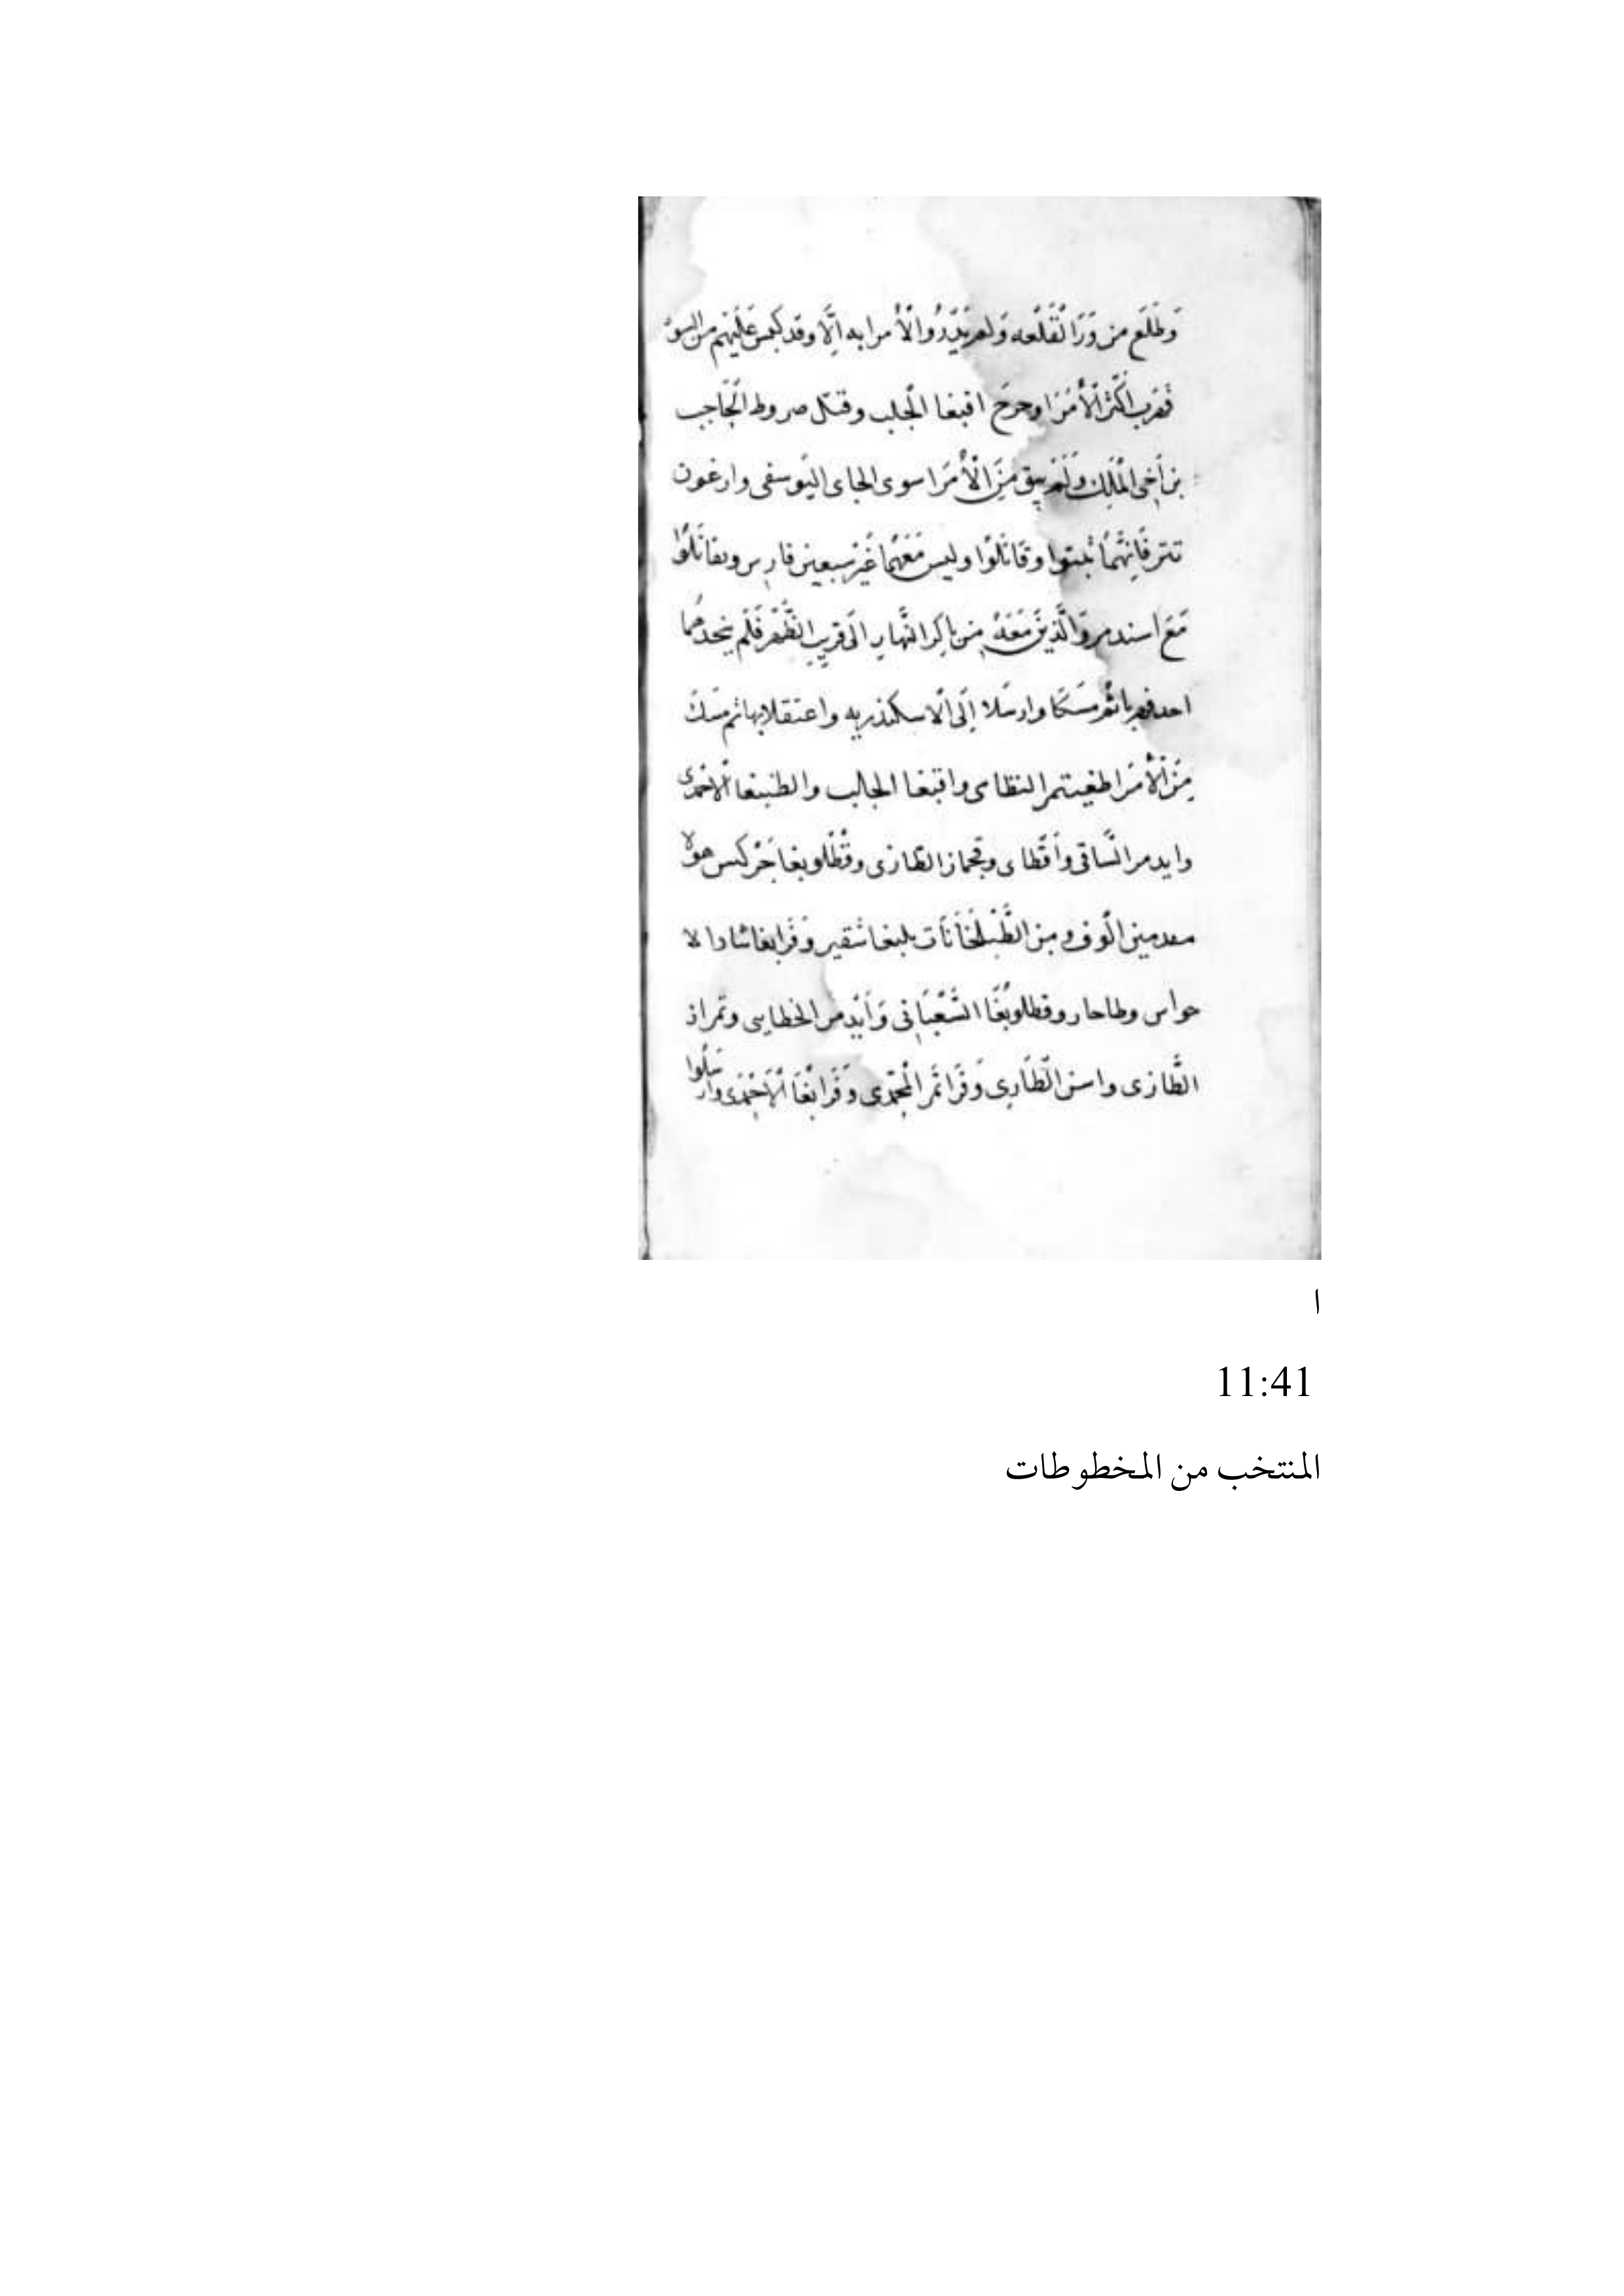 وَطَلَعَ من وَرَا الْقَلْعه وَلم يَدْرُوا الْأمرا به اِلَّا وقد كبس عَلَيْهم من السوق
فهرب اكثر الْأُمَرَا وجرح اقبغا الجلب وقتل صروط الحَاجب
بن اَخى الْمَلِك وَلَم يبق مِنَ الْأُمَرَا سوى الجاى اليوسفى وارغون
تتر فَاِنهُّمَا ثبتوا وقَاتَلُوا وليس مَعَهُمَا غَيْر سبعين فارس وتقاتَلُوا
مَعَ اسندمر وَالَّذِينَ مَعَهُ مِن بَاكِر النَّهارِ الَى قريبِ الظُّهْر فَلَم ينجدهُما
احد فهربا ثُمّ مسَكَا وارسَلا اِلَى الاسكندريه واعتقلا بها ثم مسَك
مِنَ الْأُمَرَا طغيتمر النظامى واقبغا الجالب والطنبغا الْأَحْمَدى
وايدمر السَّاقى وأَقْطاى وقجماز الطازى وقُطْلوبغا جَرْكس هولا
مقدمين الُوف ومن الطَّبْلَخَانَات يلبغا شقير وَقَرَابغا شاد الا
حواس وطاجار وقطلوبُغَا الشَّعْبَانى وَأَيْدمر الخطايى وتمراز
الطَّازى واسن الطَّازى وَقَرَاتَمُر الْمُحَمَّدى وَقَرَابُغَا الْأَحْمَدى وارسَلُوا
ا
11:41
المنتخب من المخطوطات